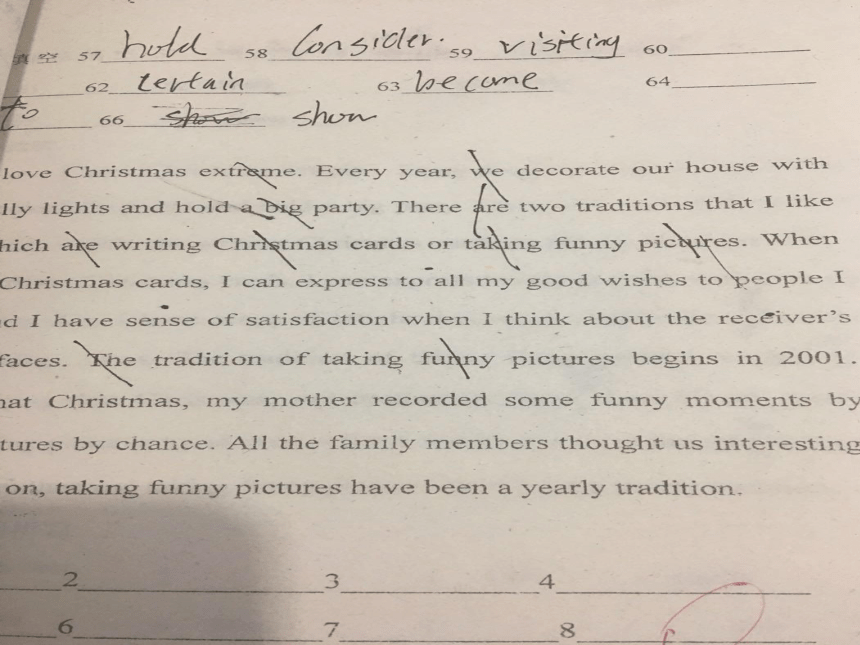 填空 57 hold 58 Consider. 59 visiting 60
62 certain 63 become 64
to 66 show show
love Christmas extreme. Every year, we decorate our house with
lly lights and hold a big party. There are two traditions that I like
hich are writing Christmas cards or taking funny pictures. When
Christmas cards, I can express to all my good wishes to people I
d I have sense of satisfaction when I think about the receiver's
faces. The tradition of taking funny pictures begins in 2001.
hat Christmas, my mother recorded some funny moments by
tures by chance. All the family members thought us interesting
on, taking funny pictures have been a yearly tradition.
2 3 4
6 7 8